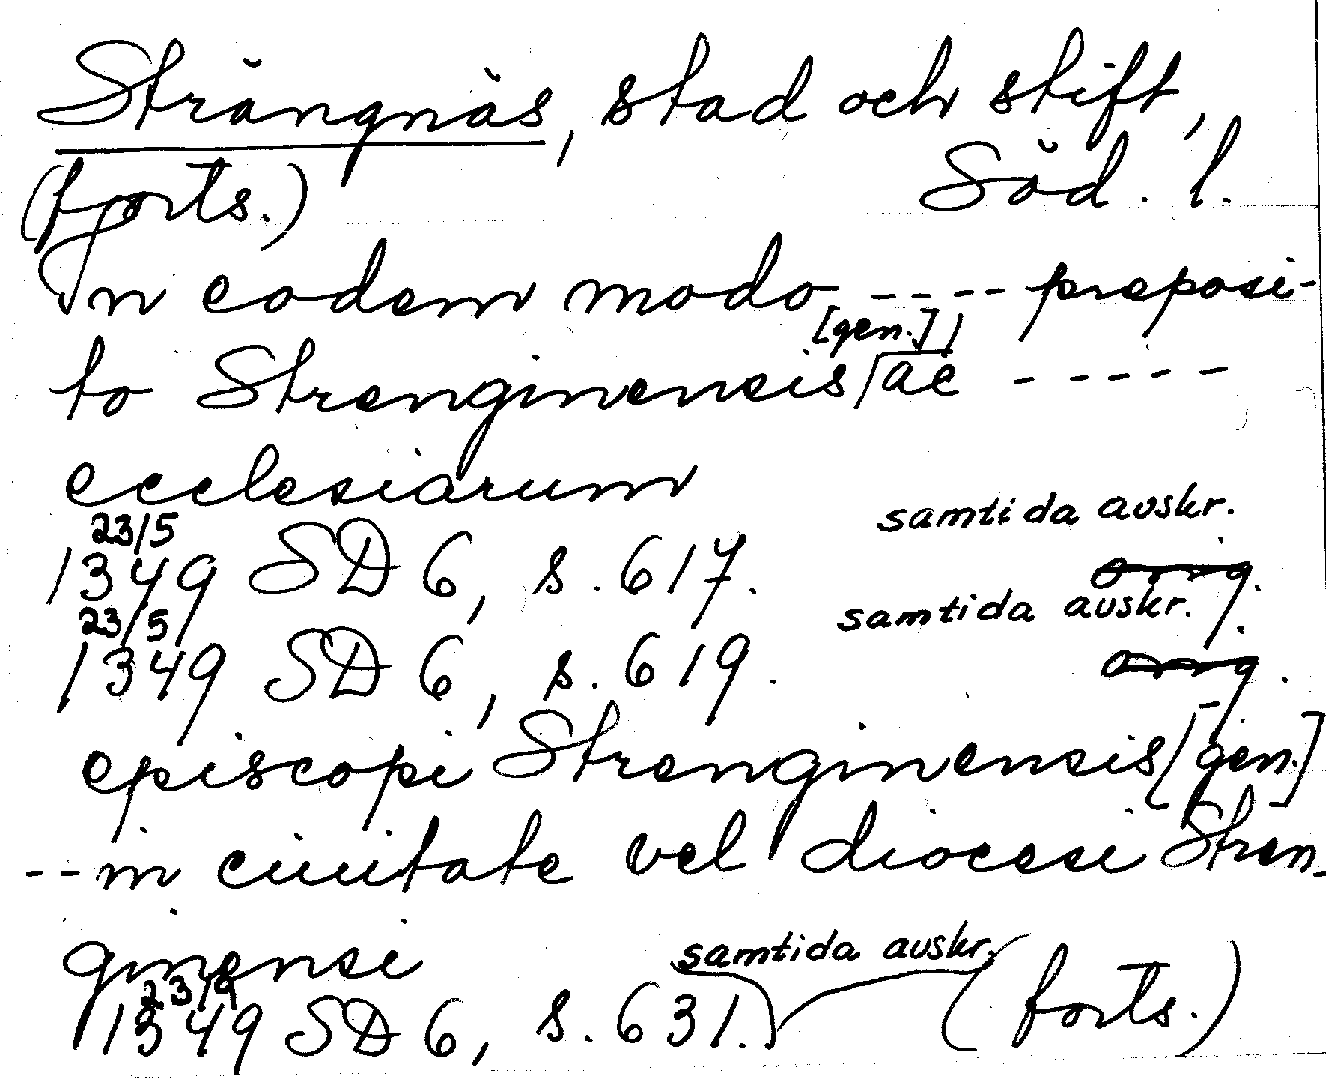 Strängnäs, stad och stift,
(forts.) Söd. l.
In eodem modo ---- preposi-
[gen.]
to Strenginensis/ae -----
ecclesiarum
samtida avskr.
23/5
1349 SD 6, s. 617. orig.
samtida avskr.
23/5
1349 SD 6, s. 619. orig.
episcopi Strenginensis [gen.]
-- in ciuitate vel diocesi Stren-
ginensi
samtida avskr.
1349 SD 6, s. 631. (forts.)